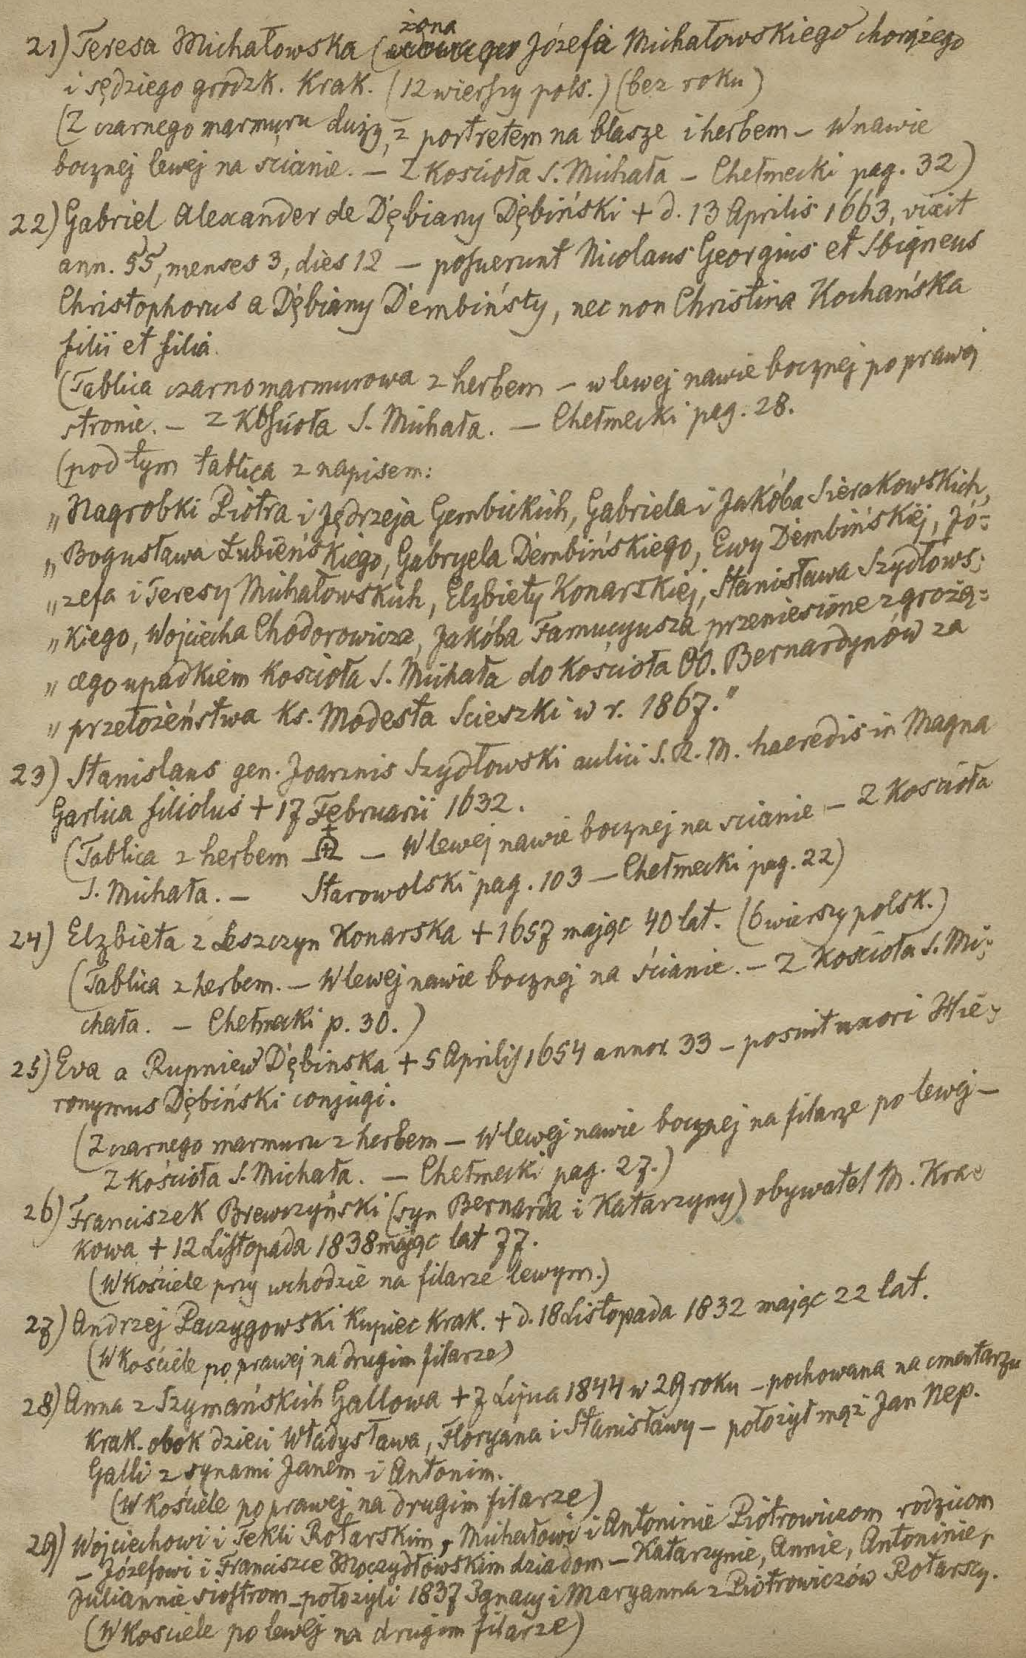 żona
21) Teresa Michałowska (Józefa Michałowskiego chorążego
i sędziego grodzk. Krak. (12 wierszy pols.) (bez roku)
(Z czarnego marmuru duży, z portretem na blasze i herbem – W nawie
bocznej lewej na ścianie. – Z Kościoła S. Michała – Chełmecki pag. 32)
22) Gabriel Alexander de Dębiany Dębiński + d. 13 Aprilis 1663, vixit
ann. 55, menses 3, dies 12 – posuerunt Nicolaus Georgius et Sbigneus
Christophorus a Dębiany Dembiństy, nec non Christina Kochańska
filii et filia.
(Tablica czarnomarmurowa z herbem – w lewej nawie bocznej po prawej
stronie. – Z Kościoła S. Michała. – Chełmecki pag. 28.
(pod tym tablica z napisem:
„Nagrobki Piotra i Jędrzeja Gembickich, Gabriela i Jakóba Sierakowskich,
„Bogusława Łubieńskiego, Gabryela Dembińskiego, Ewy Dembińskiej, Jó-
„zefa i Teresy Michałowskich, Elżbiety Konarskiej, Stanisława Szydłows-
„kiego, Wojciecha Chodorowicza, Jakóba Famucyusza przeniesione z grożą-
„cego upadkiem Kościoła S. Michała do Kościoła OO. Bernardynów za
„przełożeństwa Ks. Modesta Scieszki w r. 1867."
23) Stanislaus gen. Joannis Szydłowski aulici S. R. M. haeredis in Magna
Garlica filiolus + 17 Februarii 1632.
(Tablica z herbem – W lewej nawie bocznej na ścianie – Z Kościoła
S. Michała. – Starowolski pag. 103 – Chełmecki pag. 22)
24) Elżbieta z Leszczyn Konarska + 1657 mając 40 lat. (6 wierszy polsk.)
(Tablica z herbem. – W lewej nawie bocznej na ścianie. – Z Kościoła S. Mi-
chała. – Chełmecki p. 30.)
25) Eva a Rupniew Dębińska + 5 Aprilij 1654 annor. 33 – posuit uxori Hie-
ronymus Dębiński conjugi.
(Z czarnego marmuru z herbem – W lewej nawie bocznej na filarze po lewej –
Z Kościoła S. Michała. – Chełmecki pag. 27.)
26) Franciszek Brewczyński (syn Bernarda i Katarzyny) obywatel M. Kra-
kowa + 12 Listopada 1838 mając lat 77.
(W Kościele przy wchodzie na filarze lewym.)
27) Andrzej Paczygowski Kupiec Krak. + d. 18 Listopada 1832 mając 22 lat.
(W Kościele po prawej na drugim filarze)
28) Anna z Szymańskich Gallowa + 7 Lipca 1844 w 29 roku – pochowana na cmentarzu
Krak. obok dzieci Władysława, Floryana i Stanisławy – położył mąż Jan Nep.
Galli z synami Janem i Antonim.
(W Kościele po prawej na drugim filarze)
29) Wojciechowi i Tekli Rotarskim, Michałowi i Antoninie Piotrowiczom rodzicom
– Józefowi i Franciszce Moczydłowskim dziadom – Katarzynie, Annie, Antoninie,
Juliannie siostrom – położyli 1837 Ignacy i Maryanna z Piotrowiczów Rotarscy.
(W Kościele po lewej na drugim filarze)